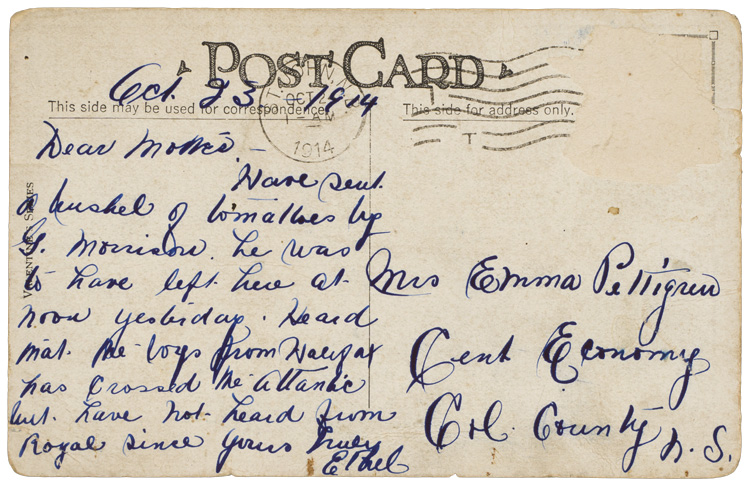 POST CARD
Oct. 23 1914
This side may be used for correspondence.
This side for address only.
OCT 2
1914
T
VALENTINE'S SERIES
Dear Mother. –
Have sent
a bushel of tomattoes by
G. Morrison. he was
to have left here at
noon yesterday. Heard
that the boys from Halifax
has crossed the Attanic
but have not heard from
Royal since Yours Truly
Ethel
Mrs Emma Pettigrew
Cent Economy
Col. County N.S.